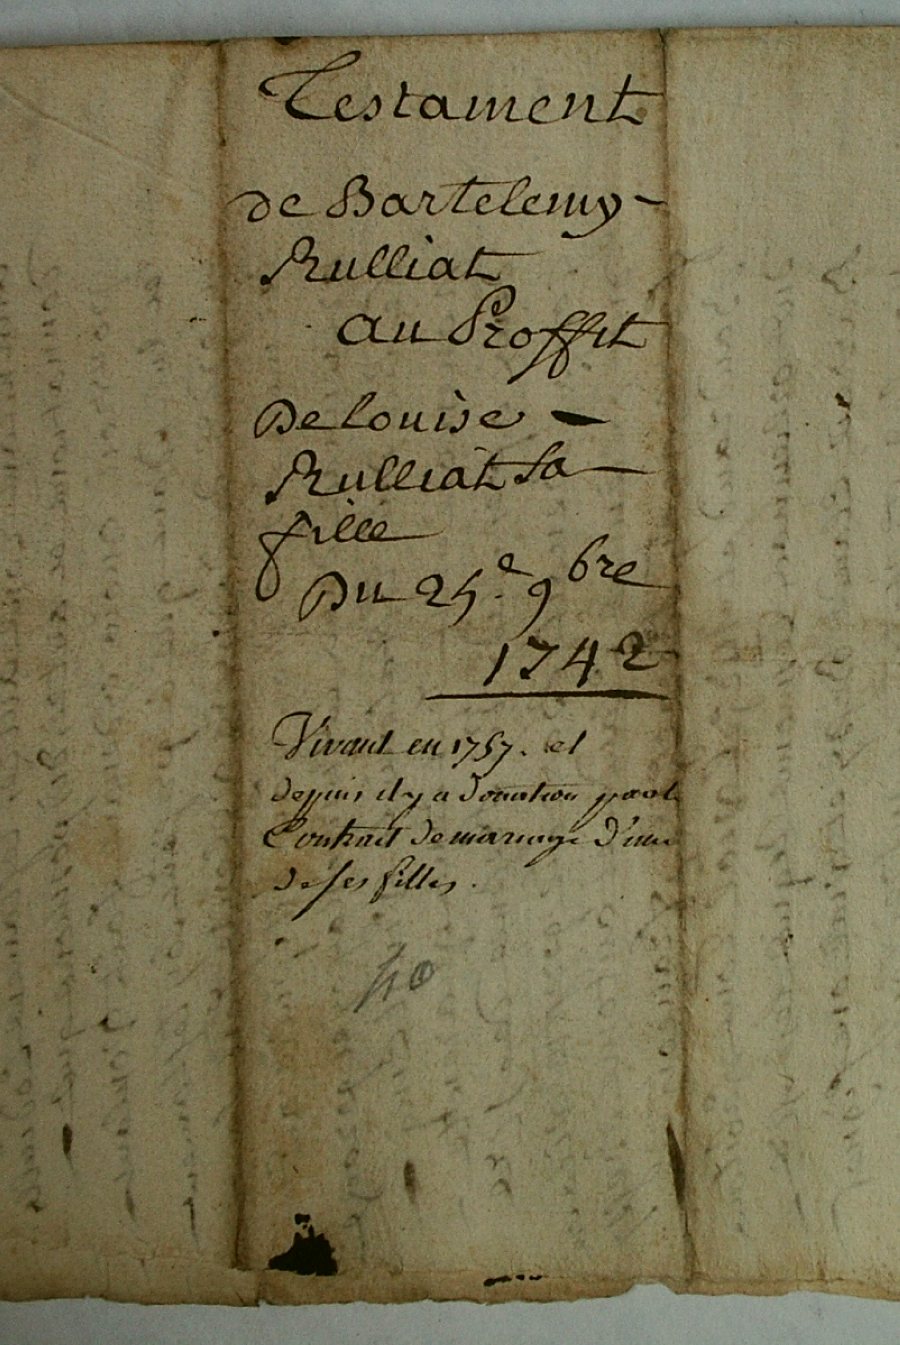 Testament
de Bartelemy -
Rulliat
au Proffit
De louise -
Rulliat sa
fille
Du 25.e 9bre
1742
Vivant en 1757. et
depuis il y a donation par le
Contrait de mariage d'une
de ses filles.
40